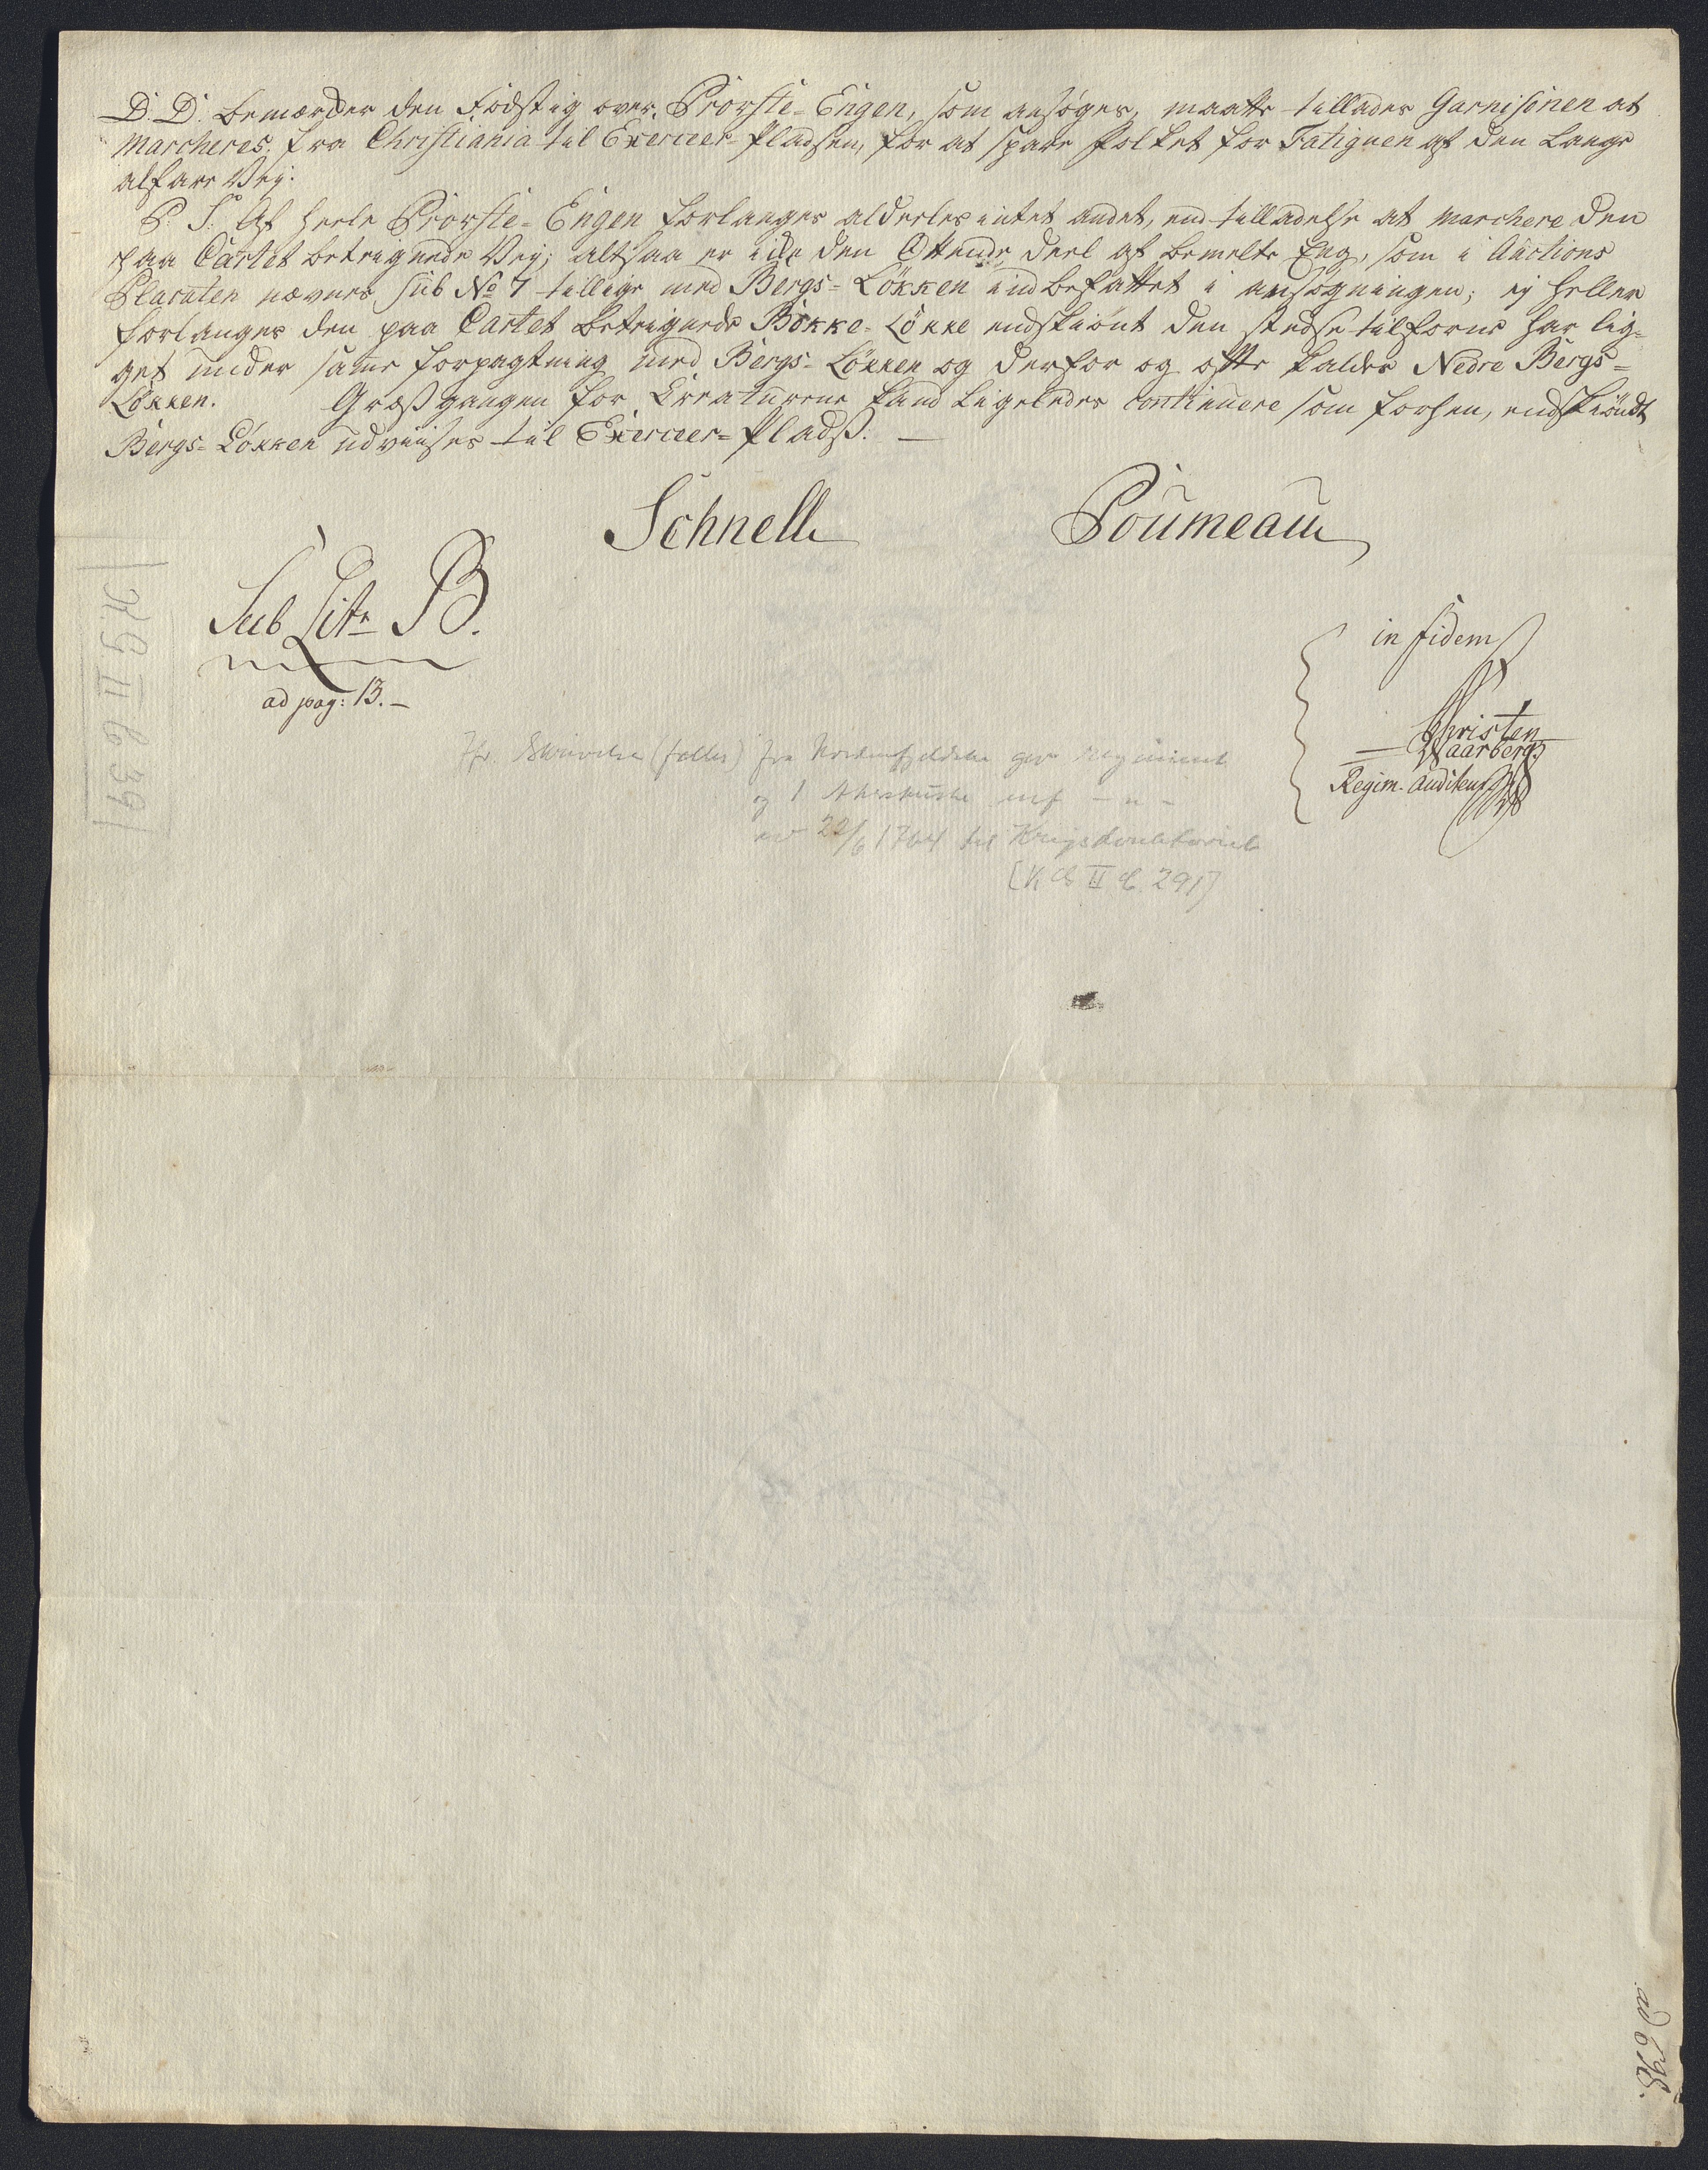 D. D. bemærker den Fodstig over Prorstie-Engen, som ansøges, maatte tillades Garnisonen at
marcheres fra Christiania til Exerceer-Pladsen, for at spare Folket for Fatiguen af den Lange
alfare Vey.
P. S. Af heele Prorstie-Engen forlanges alderles intet andet, end tilladelse at marchere den
paa Cartet betegnede Vey; altsaa er icke den Ottende deel af bemelte Eng, som i Auctions
Placaten nævnes sub No 7 tillige med Bergs-Løkken indbefattet i ansøgningen; ey heller
forlanges den paa Cartet betegnede Bökke-Løkke endskiönt den stedse tilforne har lig-
get under samme forpagtning med Bergs-Løkken og derfor og ofte kaldes Nedre Bergs-
Løkken. Græsgangen for Creaturene kand ligeledes continuere som forhen, endskiöndt
Bergs-Løkken udviises til Exerceer-Pladß. —
Schnell Poumeau
Sub Litr B.
ad pag: 13. —
in fidem
Christen
Waarberg
Regim. Auditeur
Jfr. Skrivelse (fælles) fra Nordenfjeldske gev. regiment
og 1 Akershuske inf — " —
av 22/6 1764 til Krigsdirektoriet
[KG II C. 291]
KG II b 39
ad 695.